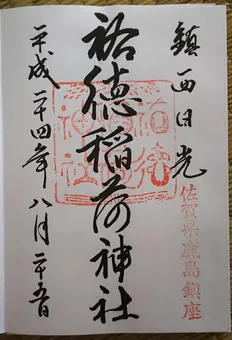 鎮西日光
佐賀県鹿島鎮座
祐徳稲荷神社
平成二十四年八月二十五日